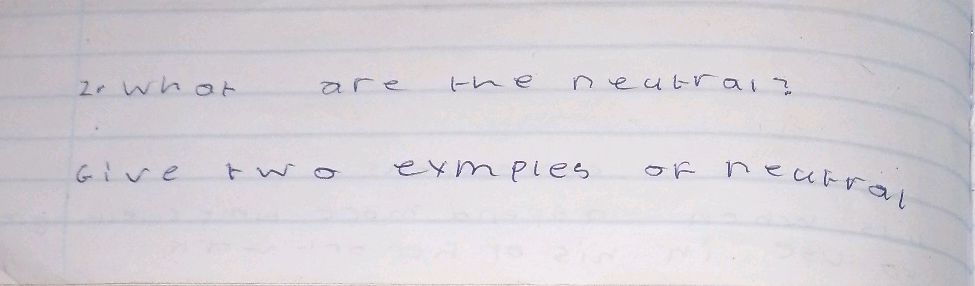 2. What are the neutral?
Give two exmples of neutral